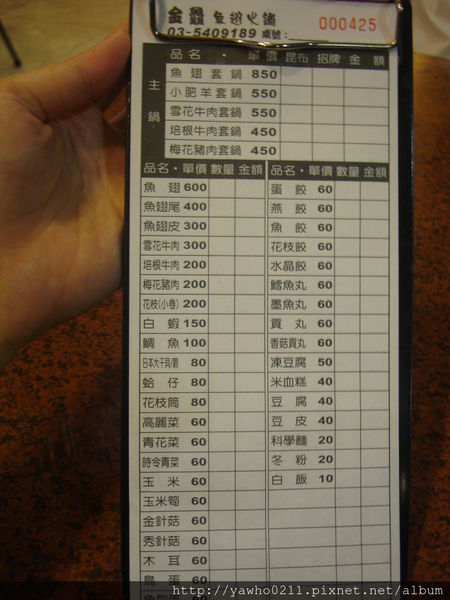 金鱻 魚翅火鍋
000425
03-5409189 桌號:
主鍋
品名 · 單價 昆布 招牌 金額
魚翅套鍋 850
小肥羊套鍋 550
雪花牛肉套鍋 550
培根牛肉套鍋 450
梅花豬肉套鍋 450
品名 · 單價 數量 金額
魚翅 600
魚翅尾 400
魚翅皮 300
雪花牛肉 300
培根牛肉 200
梅花豬肉 200
花枝(小卷) 200
白蝦 150
鯛魚 100
日本大干貝/顆 80
蛤仔 80
花枝筒 80
高麗菜 60
青花菜 60
時令青菜 60
玉米 60
玉米筍 60
金針菇 60
秀針菇 60
木耳 60
鳥蛋 60
品名 · 單價 數量 金額
蛋餃 60
燕餃 60
魚餃 60
花枝餃 60
水晶餃 60
鱈魚丸 60
墨魚丸 60
貢丸 60
香菇貢丸 60
凍豆腐 50
米血糕 40
豆腐 40
豆皮 40
科學麵 20
冬粉 20
白飯 10
http://yawho0211.pixnet.net/album